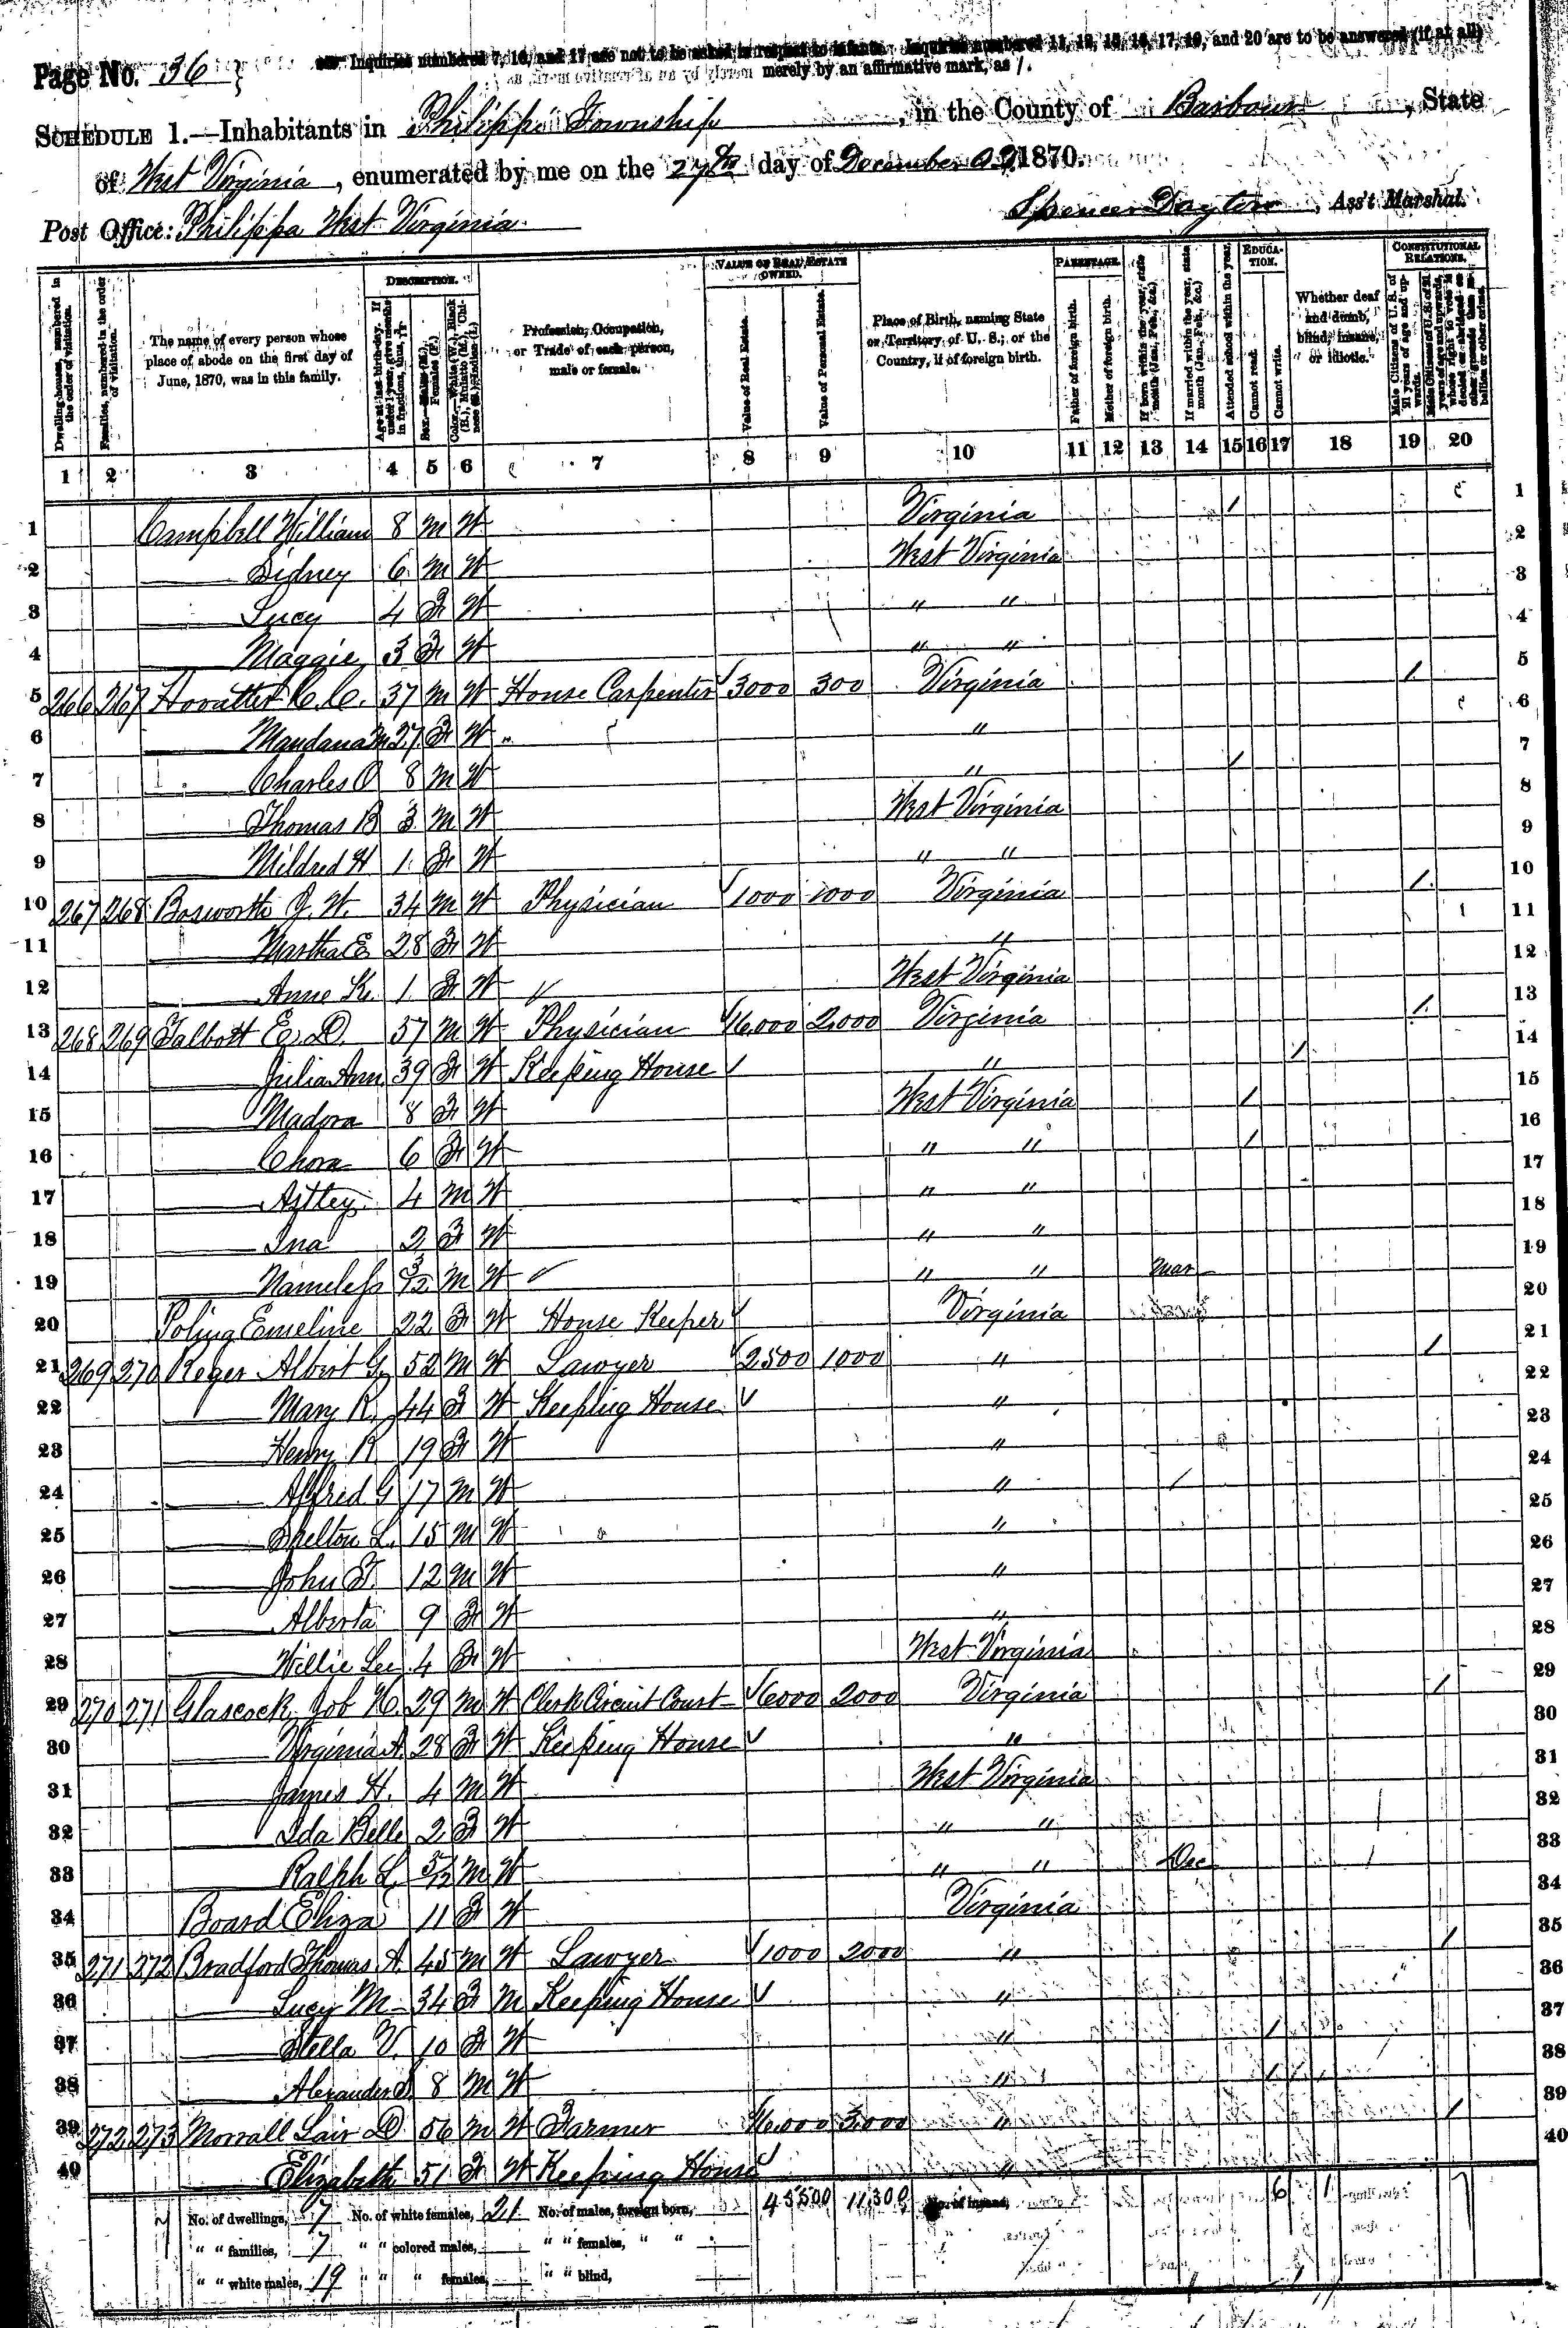 Page No. 36
Inquiries numbered 7, 16, and 17 are not to be asked in respect to infants. Inquiries numbered 11, 12, 15, 16, 17, 19, and 20 are to be answered (if at all) merely by an affirmative mark, as /.
SCHEDULE 1.—Inhabitants in Philippi Township, in the County of Barbour, State
of West Virginia, enumerated by me on the 27th day of December A.D. 1870.
Post Office: Philippa West Virginia
Spencer Dayton, Ass't Marshal.
Dwelling-houses, numbered in the order of visitation.
Families, numbered in the order of visitation.
The name of every person whose place of abode on the first day of June, 1870, was in this family.
DESCRIPTION.
Age at last birth-day. If under 1 year, give months in fractions, thus,
Sex.—Males (M.), Females (F.)
Color.—White (W.), Black (B.), Mulatto (M.), Chinese (C.), Indian (I.)
Profession, Occupation, or Trade of each person, male or female.
VALUE OF REAL ESTATE OWNED.
Value of Real Estate.
Value of Personal Estate.
Place of Birth, naming State or Territory of U. S.; or the Country, if of foreign birth.
PARENTAGE.
Father of foreign birth.
Mother of foreign birth.
If born within the year, state month (Jan., Feb., &c.)
If married within the year, state month (Jan., Feb., &c.)
Attended school within the year.
EDUCATION.
Cannot read.
Cannot write.
Whether deaf and dumb, blind, insane, or idiotic.
CONSTITUTIONAL RELATIONS.
Male Citizens of U. S. of 21 years of age and upwards.
Male Citizens of U. S. of 21 years of age and upwards, whose right to vote is denied or abridged on other grounds than rebellion or other crime.
1 2 3 4 5 6 7 8 9 10 11 12 13 14 15 16 17 18 19 20
1 Campbell William 8 M W Virginia / 1
2 Sidney 6 M W West Virginia 2
3 Lucy 4 F W " " 3
4 Maggie 3 F W " " 4
5 266 267 C. C. 37 M W House Carpenter 3000 300 Virginia / 5
6 Mandana M 27 F W " " 6
7 Charles O 8 M W " / 7
8 Thomas B 3 M W West Virginia 8
9 Mildred H 1 F W " " 9
10 267 268 Bosworth J. W. 34 M W Physician 1000 1000 Virginia / 10
11 Martha E 28 F W " 11
12 Anne K. 1 F W West Virginia 12
13 268 269 Talbott E. D. 37 M W Physician 16,000 2,000 Virginia / 13
14 Julia Ann 39 F W Keeping House " / 14
15 Madora 8 F W West Virginia / 15
16 Chora 6 F W " " / 16
17 4 M W " " 17
18 Ina 2 F W " " 18
19 Nameless 3/12 M W " " Mar 19
20 Poling Emeline 22 F W House Keeper Virginia 20
21 269 270 Reger Albert G. 52 M W Lawyer 2500 1000 " / 21
22 Mary R. 44 F W Keeping House " 22
23 Henry R 19 F W " 23
24 Alfred G 17 M W " / 24
25 Shelton L. 15 M W " 25
26 John T. 12 M W " 26
27 Alberta 9 F W " 27
28 Willie Lee 4 F W West Virginia 28
29 270 271 Glascock Job H. 29 M W Clerk Circuit Court 6000 2000 Virginia / 29
30 Virginia A. 28 F W Keeping House " 30
31 James H. 4 M W West Virginia 31
32 Ida Belle 2 F W " " 32
33 Ralph L. 5/12 M W " " Dec 33
34 Board Eliza 11 F W Virginia 34
35 271 272 Bradford Thomas A. 45 M W Lawyer 1000 2000 " / 35
36 Lucy M 34 F M Keeping House " 36
37 Stella V. 10 F W " / 37
38 Alexander S. 8 M W " / 38
39 272 273 Morrall Lair D 56 M W Farmer 16,000 3,000 " / 39
40 Elizabeth 51 F W Keeping House " 40
7 No. of dwellings, 7 No. of white females, 21 No. of males, foreign born, 45500 11,300 No. of insane, 6 1 7
" " families, 7 " " colored males, " " females, " "
" " white males, 19 " " " females, " " blind,